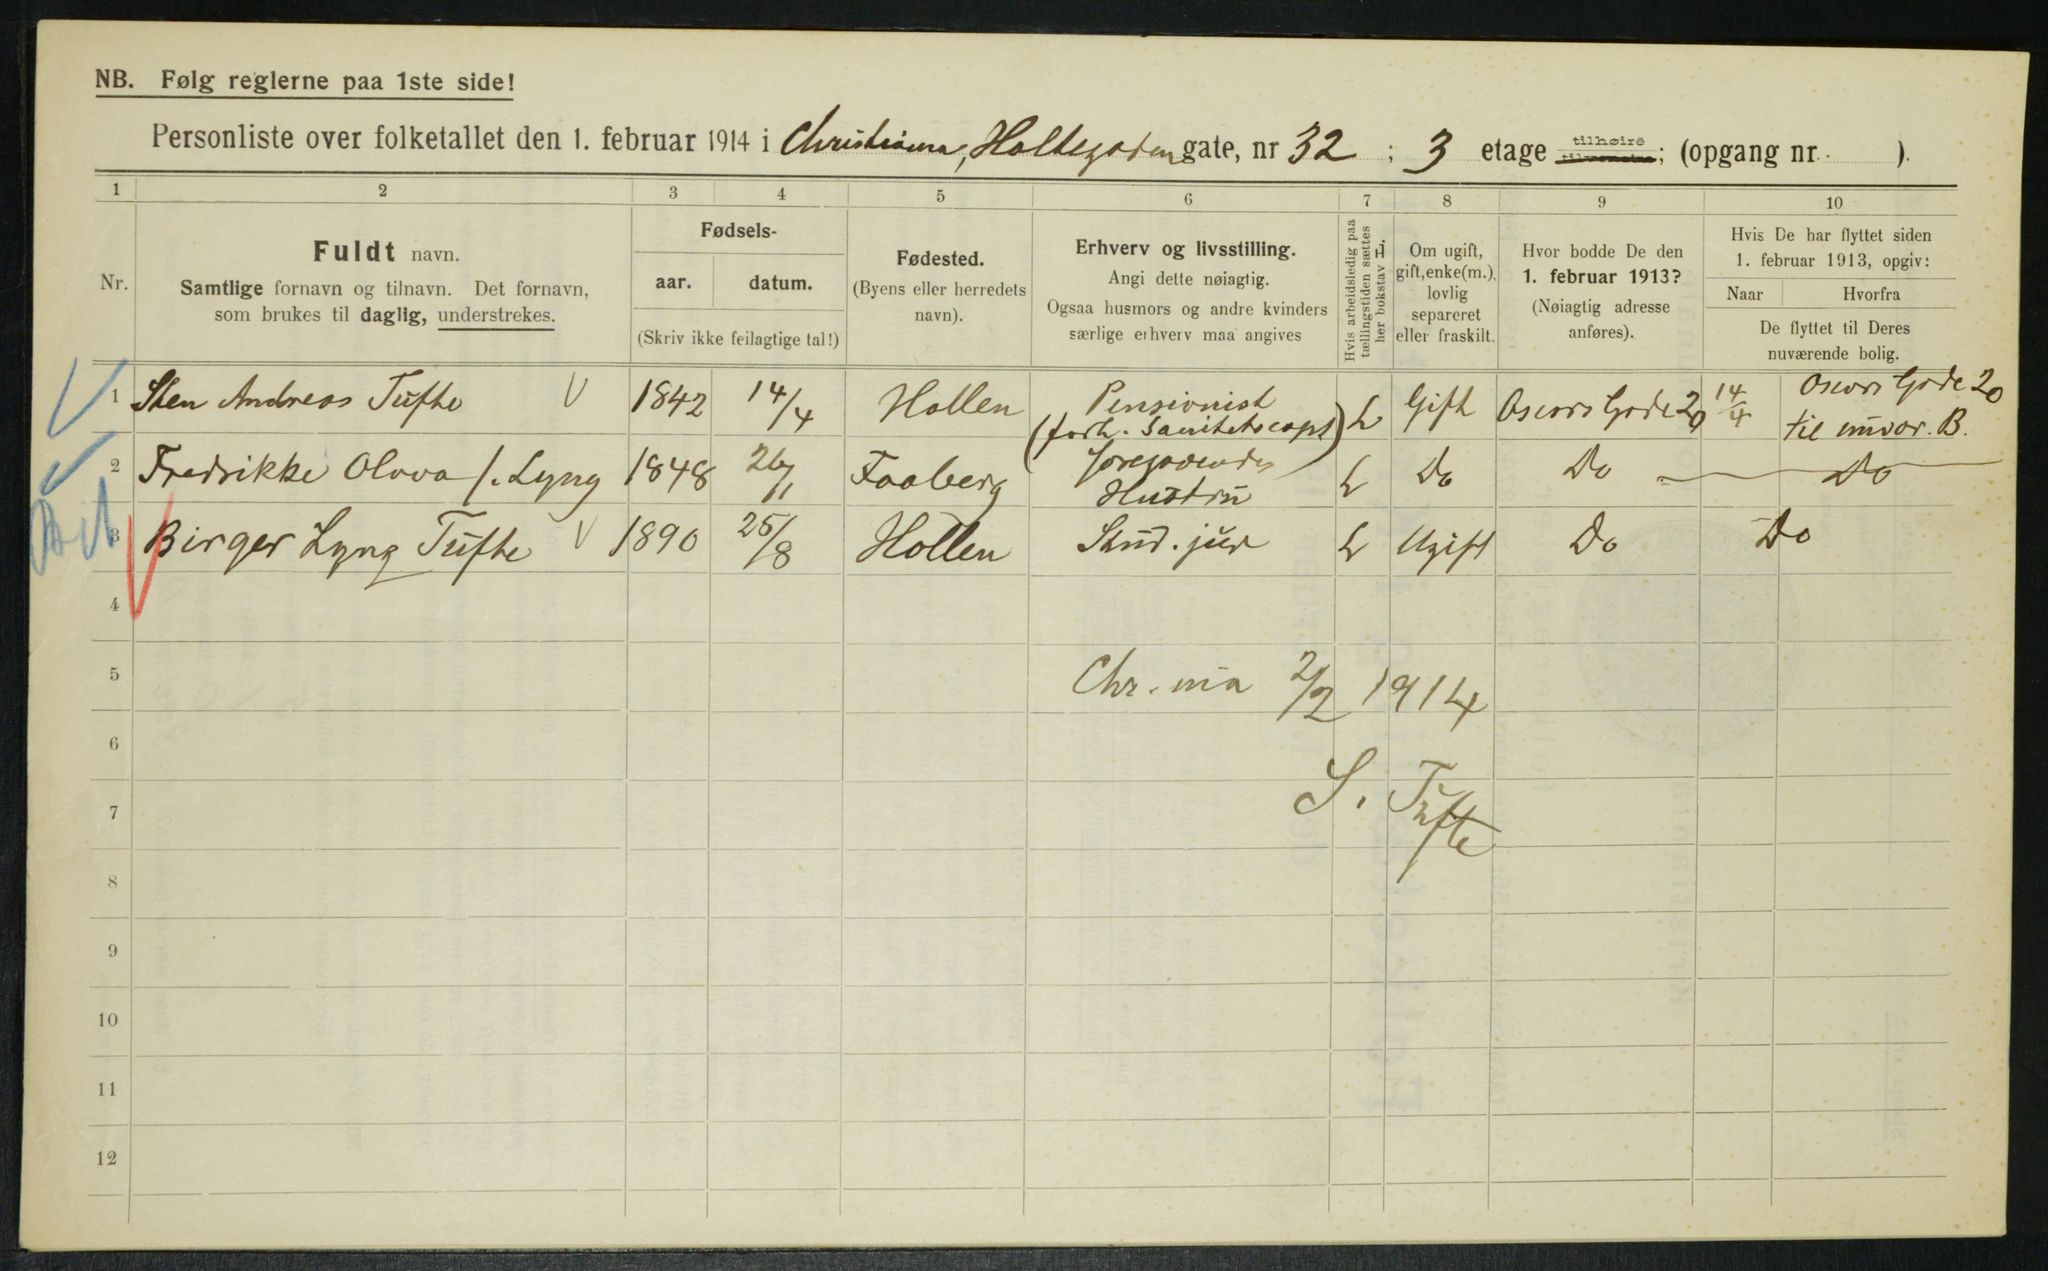 NB. Følg reglerne paa 1ste side!
Personliste over folketallet den 1. februar 1914 i Christiania, Holtegaden gate, nr 32 ; 3 etage tilhøire tilvenstre; (opgang nr. ).
1 2 3 4 5 6 7 8 9 10
Nr.
Fuldt navn.
Samtlige fornavn og tilnavn. Det fornavn,
som brukes til daglig, understrekes.
Fødsels-
aar. datum.
(Skriv ikke feilagtige tal!)
Fødested.
(Byens eller herredets
navn).
Erhverv og livsstilling.
Angi dette nøiagtig.
Ogsaa husmors og andre kvinders
særlige erhverv maa angives
Hvis arbeidsledig paa
tællingstiden sættes
her bokstav
Om ugift,
gift, enke(m.),
lovlig
separeret
eller fraskilt.
Hvor bodde De den
1. februar 1913?
(Nøiagtig adresse
anføres).
Hvis De har flyttet siden
1. februar 1913, opgiv:
Naar Hvorfra
De flyttet til Deres
nuværende bolig.
1 Sten Andreas Tufte V 1842 14/4 Hollen Pensionist (forh. Sanitetscapt) L Gift Oscars Gade 20 14/4 Oscars Gade 20 til nuvær. B.
2 Fredrikke Olava f. Lyng 1848 26/11 Faaberg Foregaaendes Hustru L Do Do Do
3 Birger Lyng Tufte V 1890 25/8 Hollen Stud. jur L Ugift Do Do
4
5 Chr.nia 2/2 1914
6
7 S. Tufte
8
9
10
11
12